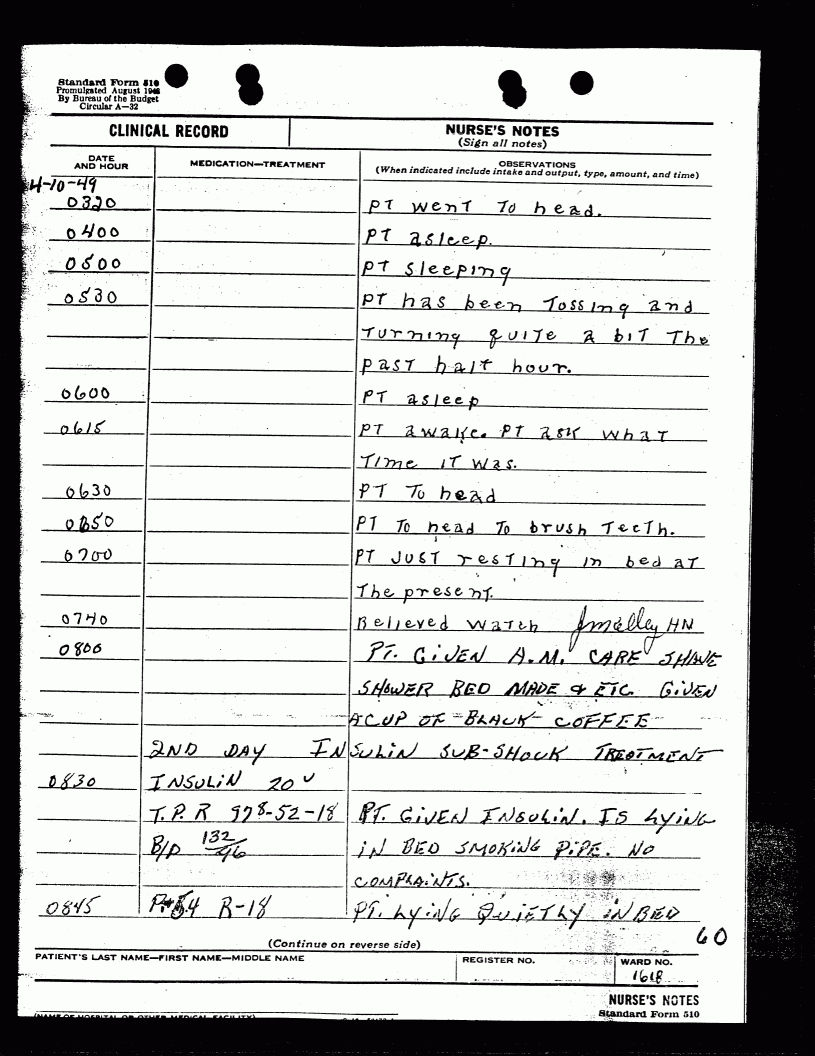 Standard Form 510
Promulgated August 1948
By Bureau of the Budget
Circular A—32
CLINICAL RECORD
NURSE'S NOTES
(Sign all notes)
DATE AND HOUR
MEDICATION—TREATMENT
OBSERVATIONS
(When indicated include intake and output, type, amount, and time)
4-10-49
0320 PT went To head.
0400 PT asleep.
0500 PT sleeping
0530 PT has been Tossing and
Turning quite a bit The
past half hour.
0600 PT asleep
0615 PT awake. PT ask what
Time it was.
0630 PT To head
0650 PT To head To brush Teeth.
0700 PT JUST resting in bed at
The present.
0740 Relieved watch HN
0800 PT. GIVEN A.M. CARE SHAVE
SHOWER BED MADE & ETC. GIVEN
A CUP OF BLACK COFFEE
2ND DAY INSULIN SUB-SHOCK TREATMENT
0830 INSULIN 20 U
T.P.R 978-52-18 PT. GIVEN INSULIN. IS LYING
B/P 132/96 IN BED SMOKING PIPE. NO
COMPLAINTS.
0845 P-54 R-18 PT. LYING QUIETLY IN BED
60
(Continue on reverse side)
PATIENT'S LAST NAME—FIRST NAME—MIDDLE NAME
REGISTER NO.
WARD NO.
161B
NURSE'S NOTES
Standard Form 510
(NAME OF HOSPITAL OR OTHER MEDICAL FACILITY)